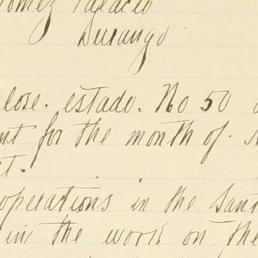 Gomez Palacio
Durango
lose. estado. No 50
nt for the month of.
t.
operations in the Sant
in the work on the